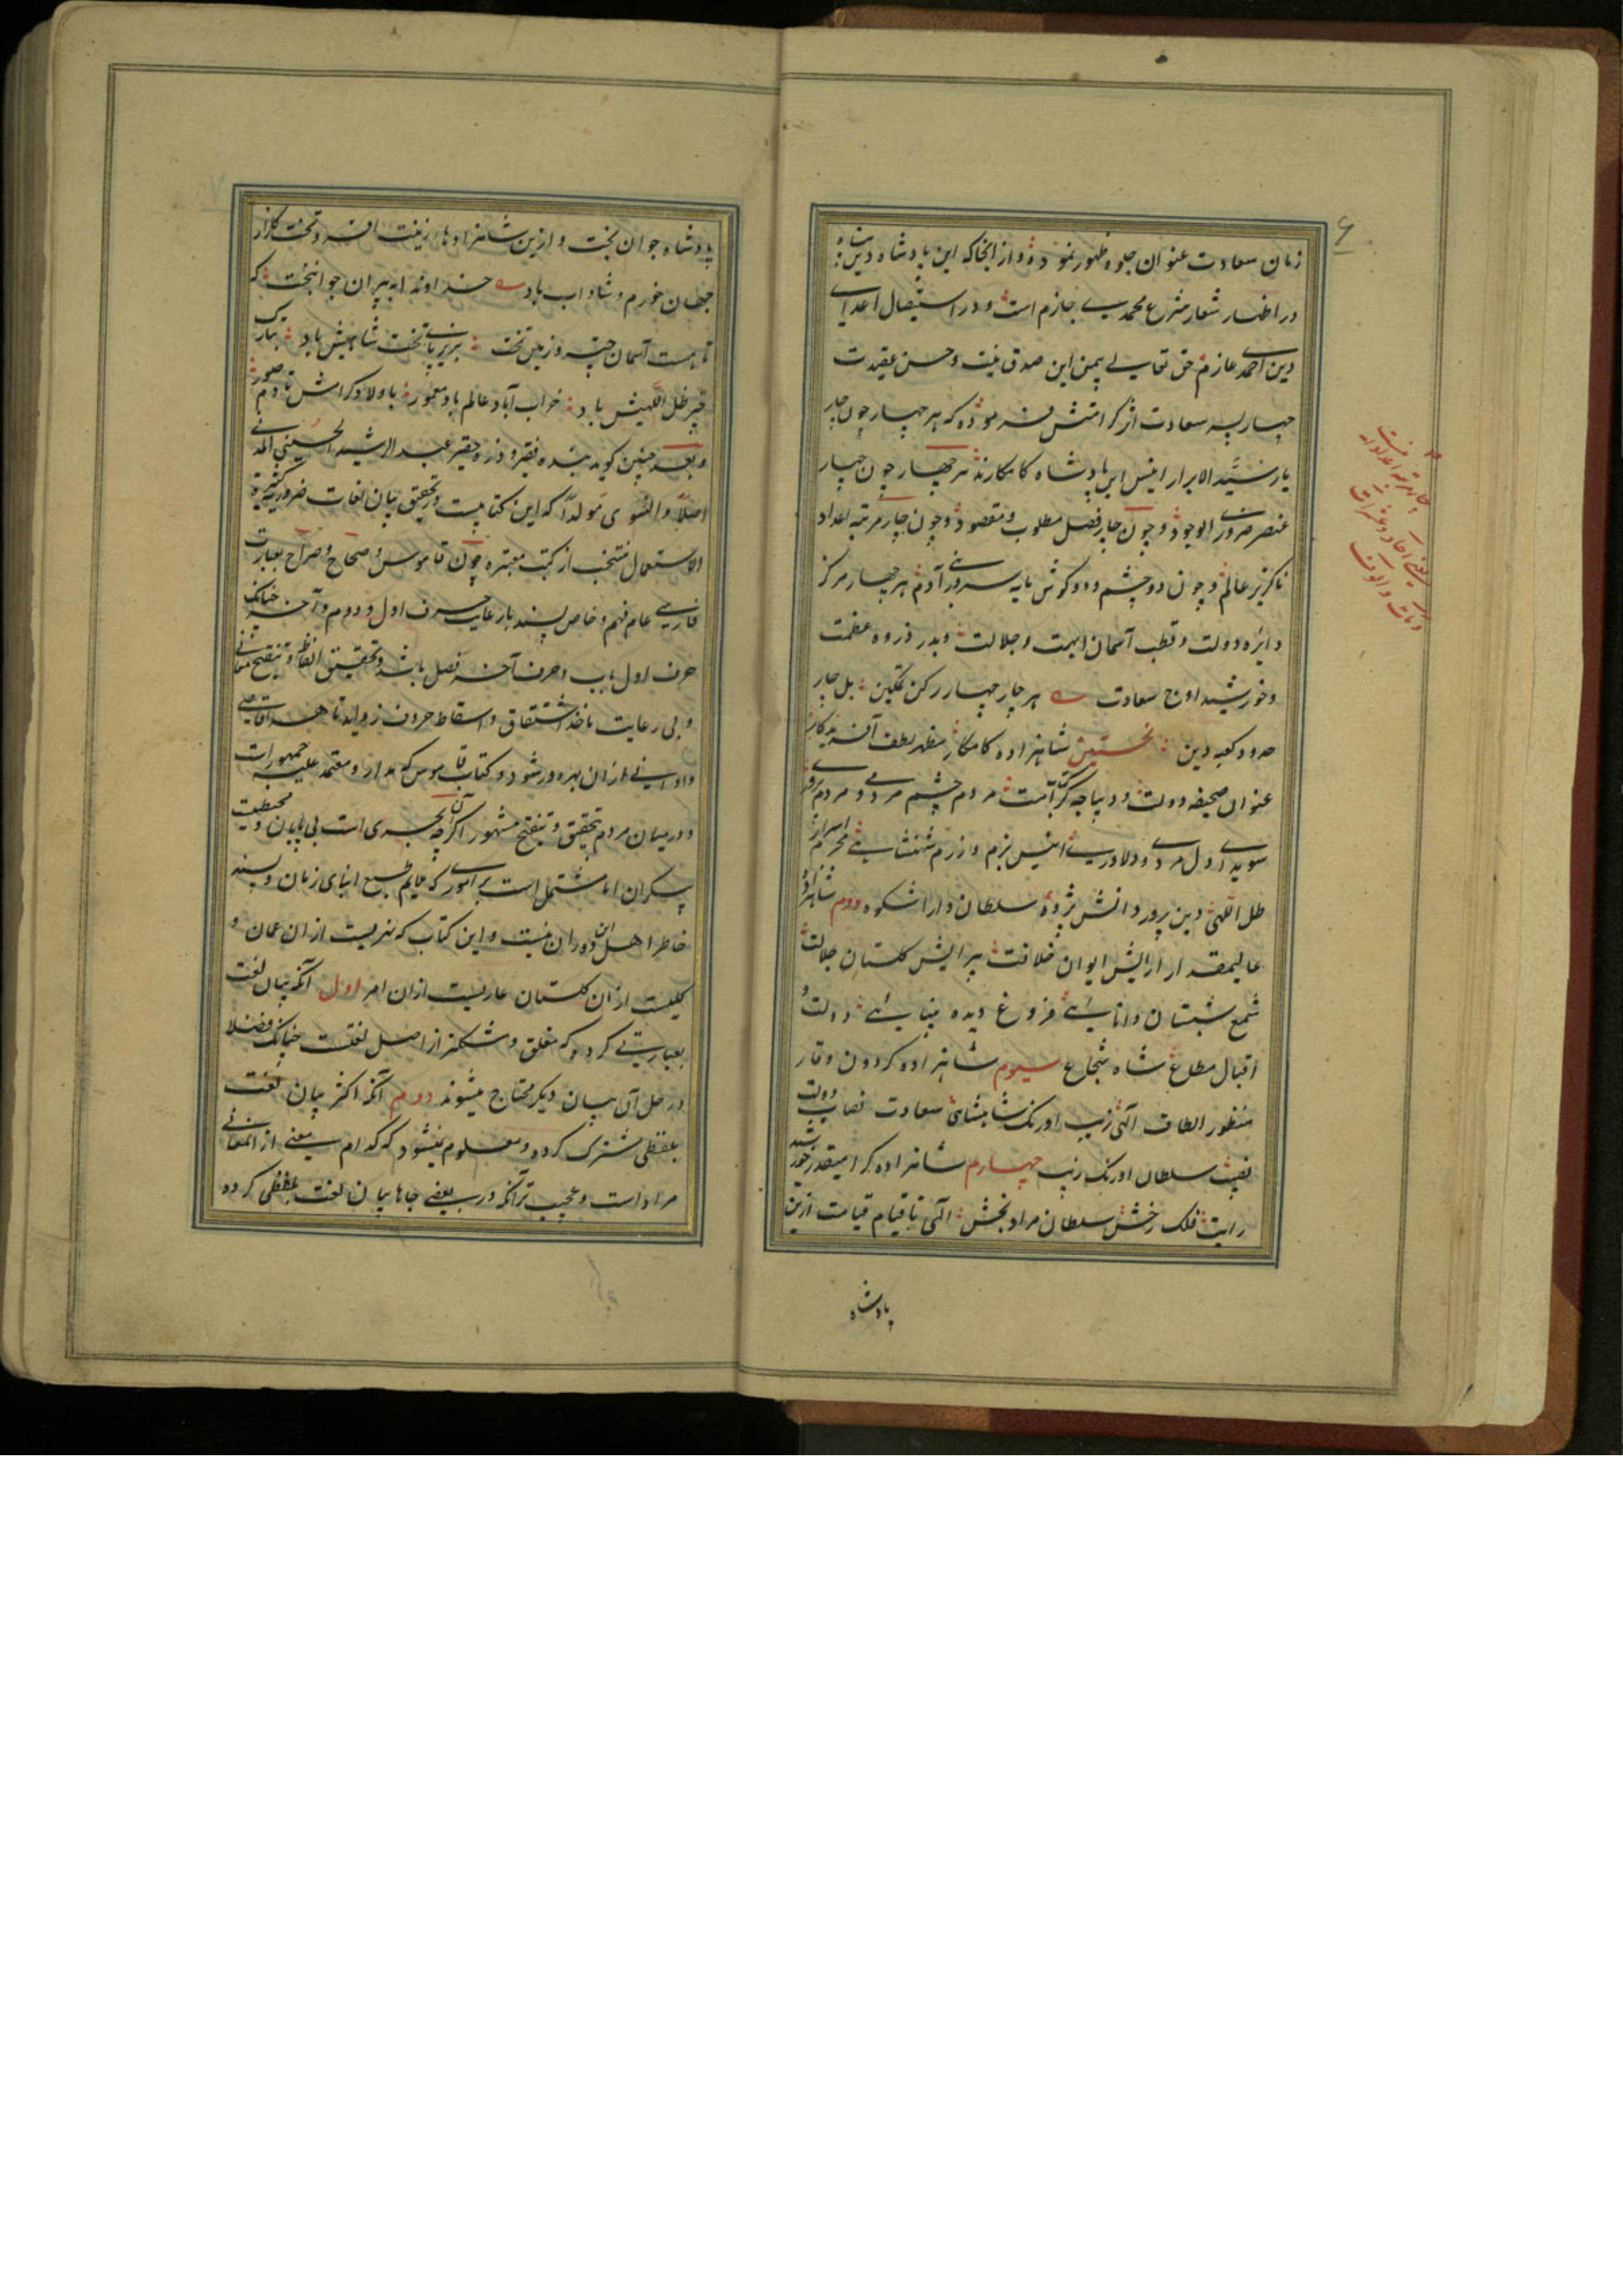 زمان سعادت عنوان جلوه ظهور نموده و از انجا که این پادشاه دین پناه
در اظهار شعار شرع محمدی جازم است و در استیصال اعدای
دین احمدی عازم حق تعالی بیمن این صدق نیت و حسن عقیدت
چهار پسر سعادت اثر کرامتش فرموده که هر چهار چون چار
یار سید الابرار انیس این پادشاه کامکارند هر چهار چون چار
عنصر ضروری الوجود و چون چار فصل مطلوب و مقصود و چون چار مرتبه اعداد
ناکزیر عالم و چون دو چشم و دو کوش مایه سروری آدم هر چهار مرکز
دایره دولت و قطب آسمان ابهت و جلالت و بدر ذروه عظمت
و خورشید اوج سعادت هر چار چهار رکن تمکین بل چار
حدود کعبه دین نخستین شاهزاده کامکار مظهر لطف آفریدکار
عنوان صحیفه دولت و دیباچه کرامت مردم چشم مردمی و مردم
سویدای دل مردی و دلاوری انیس بزم و رزم شهنشاهی محرم اسرار
ظل اللهی دین پرور دانش پژوه سلطان دارا شکوه دوم شاهزاده
عالیمقدار آرایش ایوان خلافت پیرایش کلستان جلالت
شمع شبستان دانائی فروغ دیده بینائی دولت و
اقبال مطاع شاه شجاع سیوم شاهزاده کردون وقار
منظور الطاف آلهی زیب اورنک شاهنشاهی سعادت نصاب دولت
نصیب سلطان اورنک زیب چهارم شاهزاده کرامیقدر خورشید
رایت فلک رخش سلطان مراد بخش الهی تا قیام قیامت ازین
پادشاه
پادشاه جوان بخت و ازین شاهزادها زینت افسر و تخت کلزار
جهان خورم و شاداب باد خداوندا به پیران جوانبخت که
تا هست آسمان چتر و زمین تخت بزیر پای تخت شاهیش باد بتارک
چتر ظل اللهیش باد خراب آباد عالم باد معمور باولاد کرامش تا دم صور
و بعد چنین کوید بنده فقیر و ذره حقیر عبد الرشید الحسینی المدنی
اصلاً و التتوی مولداً که این کتابیست در تحقیق بیان لغات ضروریه کثیرة
الاستعمال منتخب از کتب معتبره چون قاموس و صحاح و صراح بعبارت
فارسی عام فهم و خاص پسند با رعایت حرف اول و دوم و آخر چنانکه
حرف اول باب و حرف آخر فصل باشد و تحقیق الفاظ و تنقیح معانی
و بی رعایت ماخذ اشتقاق و اسقاط حروف زواید تا همه اقاصی
و ادانی از ان بهره ور شود و کتاب قاموس که مدار و معتمد علیه جمهور است
و درمیان مردم تحقیق و تنقیح مشهور اکرچه آن بحری است بی پایان و محیطیست
بیکران اما مشتمل است بر اموری که ملایم طبع ابنای زمان و پسند
خاطر اهل این دوران نیست و این کتاب که نهریست از ان عمان و
کلیست از ان کلستان عاریست از ان امور اول آنکه بیان لغت
بعبارتی کرده که مغلق و مشکلتر از اصل لغت است چنانکه فضلا
در حل آن بیان دیکر محتاج میشوند دوم آنکه اکثر بیان لغت
بلفظی مشترک کرده و معلوم نمیشود که کدام معنی از المعانی
مراد است و عجیب تر آنکه در بعضی جاها بیان لغت بلفظی کرده